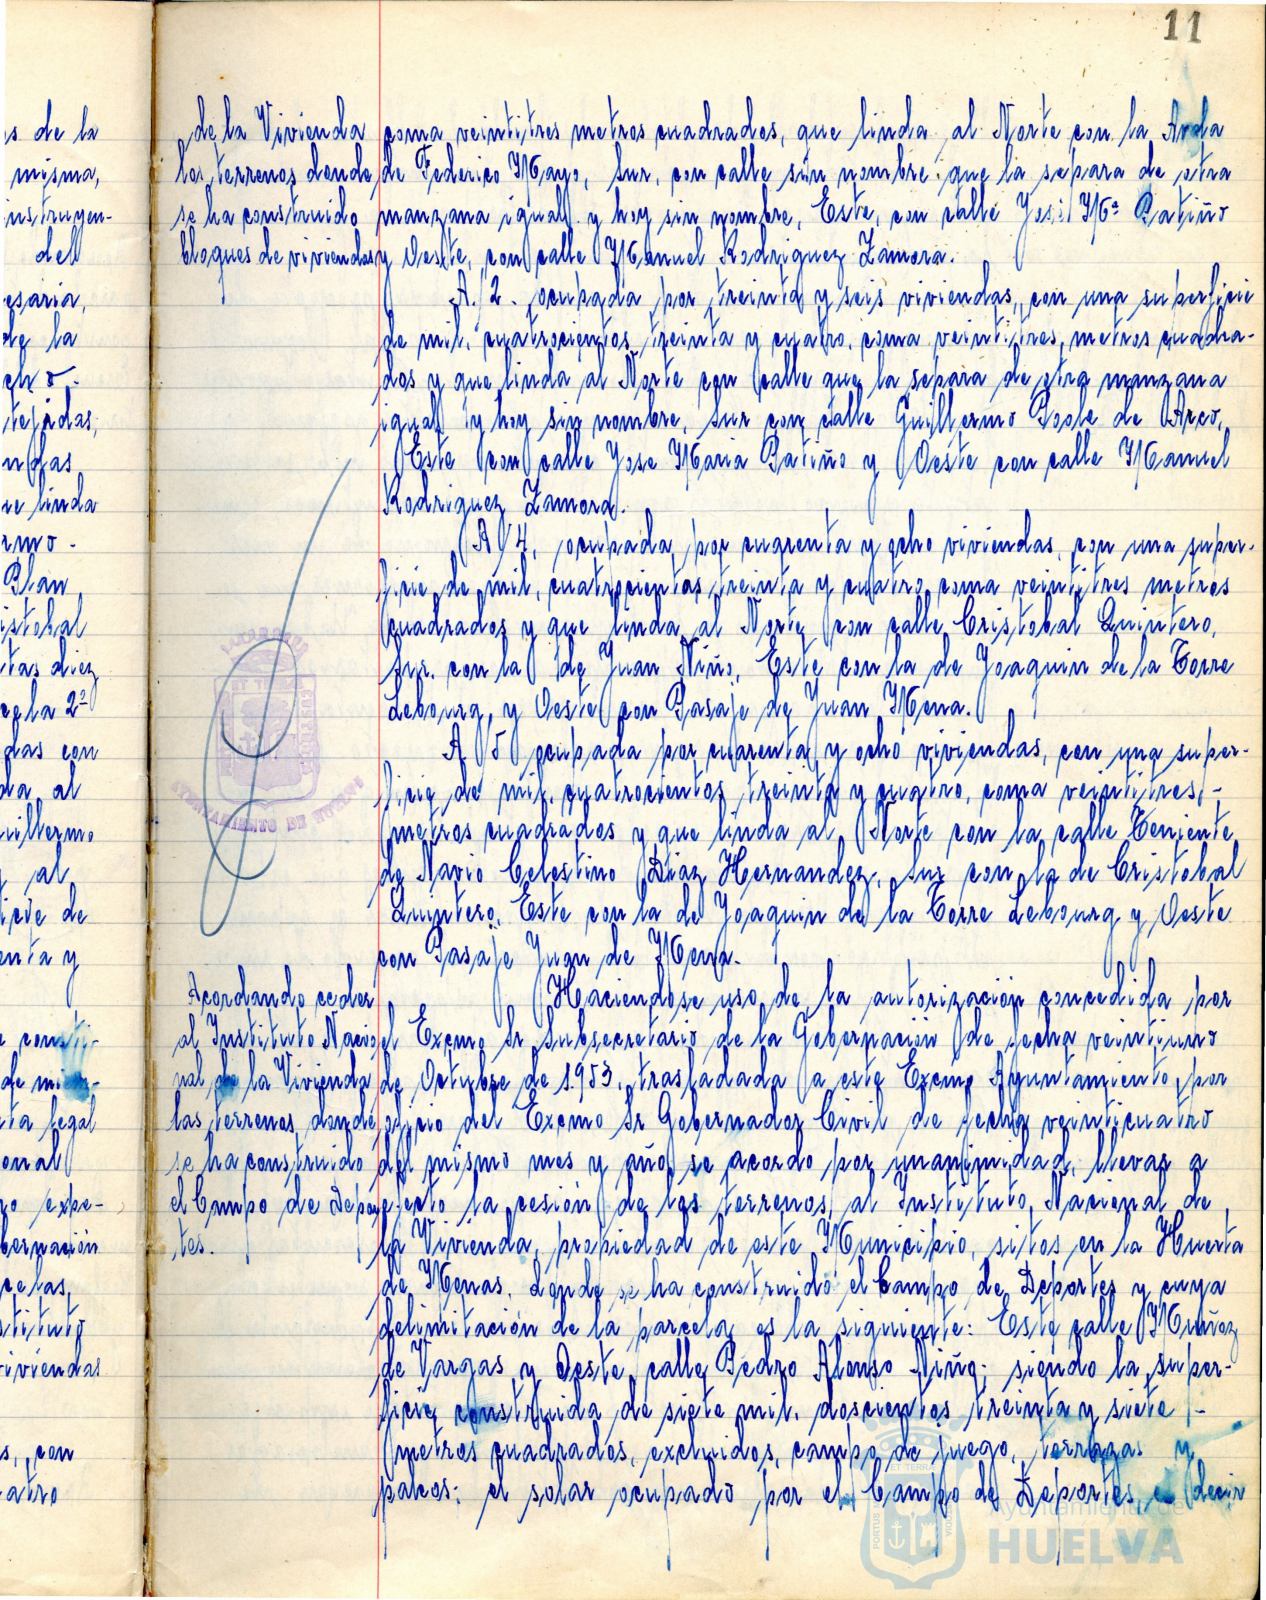 11
de la Vivienda
los terrenos donde
se ha construido
bloques de viviendas
coma veintitres metros cuadrados, que linda al Norte con la Avda
de Federico Mayo, Sur, con calle sin nombre que la separa de otra
manzana igual y hoy sin nombre, Este, con calle José Mª Patiño
y Oeste, con calle Manuel Rodriguez Zamora.
A/2. ocupada por treinta y seis viviendas, con una superficie
de mil, cuatrocientos treinta y cuatro, coma veintitres, metros cuadra-
dos y que linda al Norte con calle que la separa de otra manzana
igual y hoy sin nombre, Sur con calle Guillermo Poole de Arco,
Este con calle Jose Maria Patiño y Oeste con calle Manuel
Rodriguez Zamora.
A/4, ocupada por cuarenta y ocho viviendas, con una super-
ficie de mil, cuatrocientos treinta y cuatro coma veintitres metros
cuadrados y que linda al Norte con calle Cristobal Quintero,
Sur. con la de Juan Niño, Este con la de Joaquin de la Torre
Lebourg y Oeste con Pasaje de Juan Mena.
A/5 ocupada por cuarenta y ocho viviendas, con una super-
ficie de mil, cuatrocientos treinta y cuatro, coma veintitres,-
metros cuadrados y que linda al Norte con la calle Teniente
de Navio Celestino Diaz Hernandez, Sur con la de Cristobal
Quintero, Este con la de Joaquin de la Torre Lebourg y Oeste
con Pasaje Juan de Mena.
AYUNTAMIENTO DE HUELVA
Acordando ceder
al Instituto Nacio
nal de la Vivienda
los terrenos donde
se ha construido
el Campo de Depor
tes.
Haciendose uso de la autorización concedida por
el Excmo Sr Subsecretario de la Gobernación de fecha veintiuno
de Octubre de 1.953, trasladada a este Excmo Ayuntamiento, por
oficio del Excmo Sr Gobernador Civil de fecha veinticuatro
del mismo mes y año, se acordo por unanimidad, llevar a
efecto la cesión de los terrenos, al Instituto Nacional de
la Vivienda, propiedad de este Municipio, sitos en la Huerta
de Menas, donde se ha construido el Campo de Deportes y cuya
delimitación de la parcela es la siguiente: Este calle Muñoz
de Vargas y Oeste calle Pedro Alonso Niño; siendo la super-
ficie construida de siete mil, doscientos treinta y siete -
metros cuadrados, excluidos, campo de juego, terrazas y
palcos: el solar ocupado por el Campo de Deportes, es decir
Ayuntamiento de
HUELVA
s de la
misma,
nstruyen-
del
esaria,
de la
tejidas,
ndas
ue linda
rmo -
Plan
istobal
tas diez
cela 2ª
das con
da al
uillermo
y al
icie de
enta y
e consti-
ta legal
onal
ro expe-
bernación
celas,
stituto
viviendas
s, con
atro